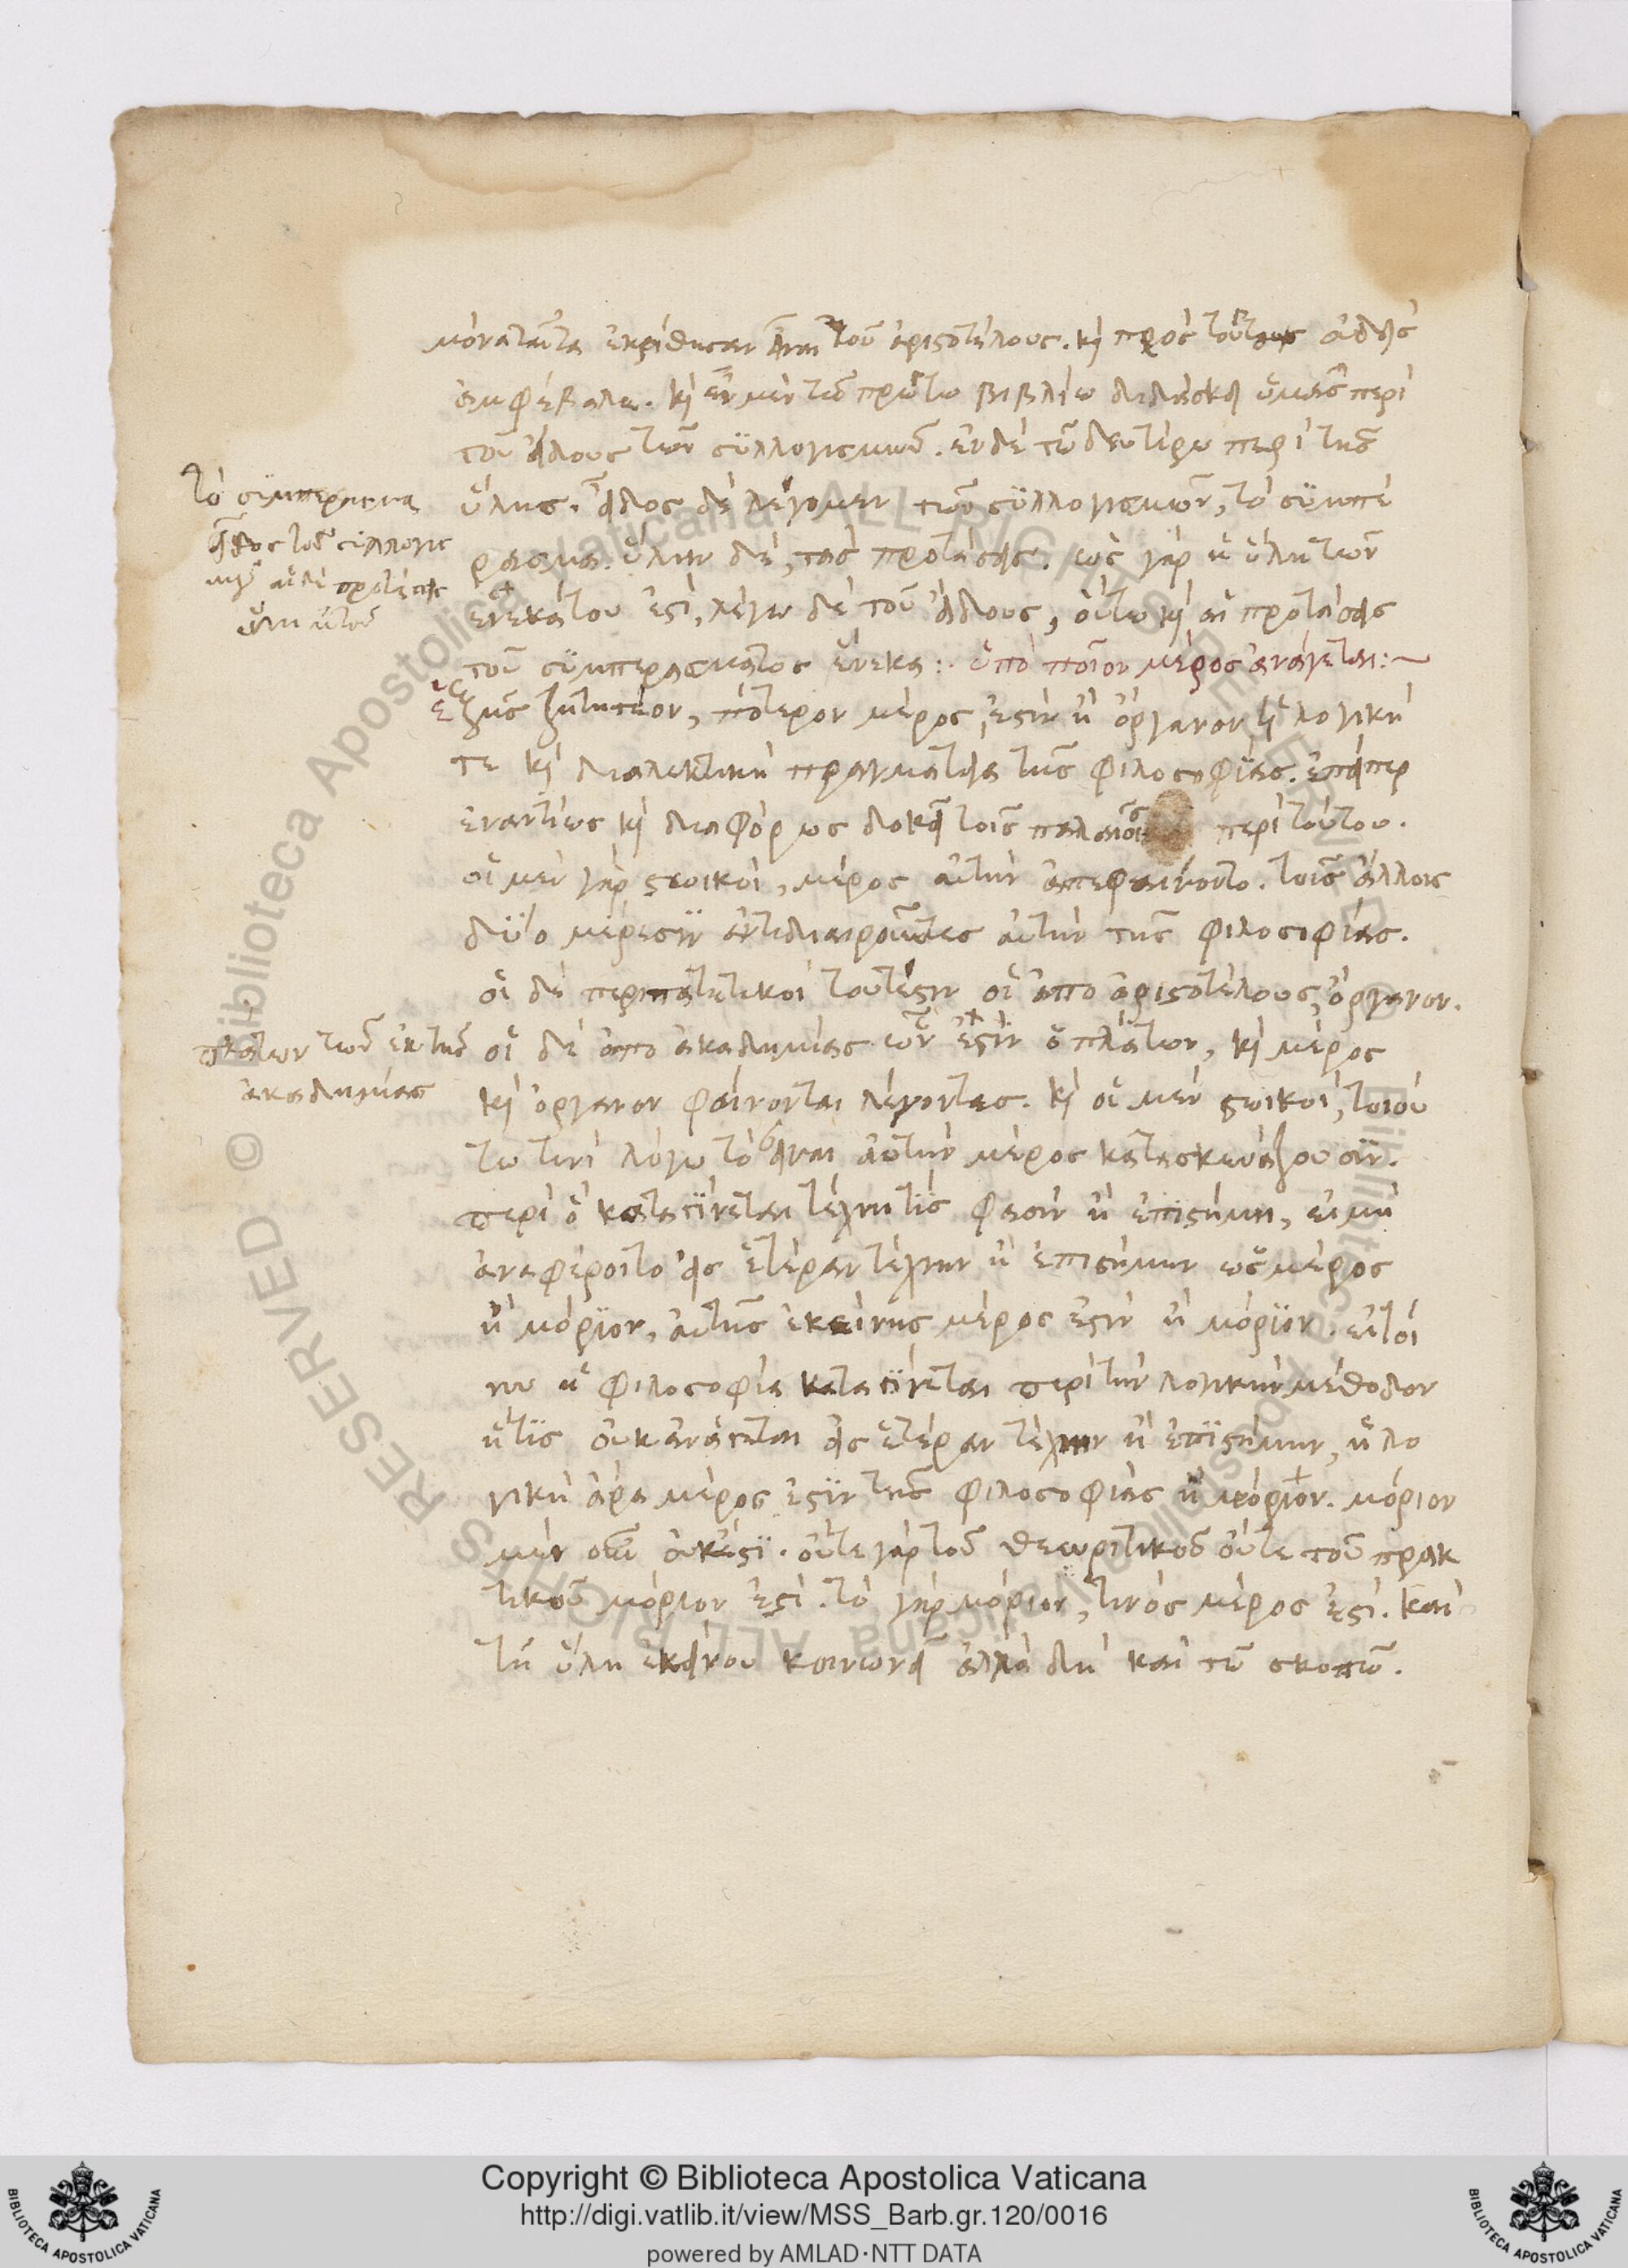 μόνα ταῦτα ἐκρίθησαν εἶναι τοῦ ἀριστοτέλους. καὶ πρὸς τούτοις οὐδεὶς
ἀμφέβαλε. καὶ ἐν μὲν τῶ πρώτω βιβλίω διδάσκει ὑμᾶς περὶ
τοῦ εἴδους τῶν συλλογισμῶν. ἐν δὲ τῶ δευτέρω περὶ τῆς
ὕλης. εἶδος δὲ λέγομεν τῶν συλλογισμῶν, τὸ συμπέ
ρασμα. ὕλην δὲ, τὰς προτάσεις. ὡς γὰρ ἡ ὕλη τῶν
ἕνεκά του ἐστὶ, λέγω δὲ τοῦ εἴδους, οὕτω καὶ αἱ προτάσεις
τοῦ συμπεράσματος ἕνεκα:. ὑπὸ ποῖον μέρος ἀνάγεται:~
ἑξῆς ζητητέον, πότερον μέρος ἐστὶν ἢ ὄργανον ἡ λογική
τε καὶ διαλεκτικὴ πραγματεία τῆς φιλοσοφίας. ἐπείπερ
ἐναντίως καὶ διαφόρως δοκεῖ τοῖς παλαιοῖς περὶ τούτου.
οἱ μὲν γὰρ στωικοὶ, μέρος αὐτὴν ἀπεφαίνοντο. τοῖς ἄλλοις
δύο μέρεσιν ἀντιδιαιροῦντες αὐτὴν τῆς φιλοσοφίας.
οἱ δὲ περιπατητικοὶ τουτέστιν οἱ ἀπὸ ἀριστοτέλους, ὄργανον.
οἱ δὲ ἀπὸ ἀκαδημίας ὧν ἐστὶν ὁ πλάτων, καὶ μέρος
καὶ ὄργανον φαίνονται λέγοντες. καὶ οἱ μὲν στωικοὶ, τοιού
τω τινὶ λόγω τὸ εἶναι αὐτὴν μέρος κατασκευάζουσιν.
περὶ ὃ καταγίνεται τέχνη τίς φασιν ἢ ἐπιστήμη, εἰ μὴ
ἀναφέροιτο εἰς ἑτέραν τέχνην ἢ ἐπιστήμην ὡς μέρος
ἢ μόριον, αὐτῆς ἐκείνης μέρος ἐστὶν ἢ μόριον. εἰ τοί
νυν ἡ φιλοσοφία καταγίνεται περὶ τὴν λογικὴν μέθοδον
ἥτις οὐκ ἀνάγεται εἰς ἑτέραν τέχνην ἢ ἐπιστήμην, ἡ λο
γικὴ ἄρα μέρος ἐστὶν τῆς φιλοσοφίας ἢ μόριον. μόριον
μὲν οὖν οὐκ ἐστί. οὔτε γὰρ τοῦ θεωρητικοῦ οὔτε τοῦ πρακ
τικοῦ μόριον ἐστὶ. τὸ γὰρ μόριον, τινὸς μέρος ἐστὶ. καὶ
τῆ ὕλη ἐκείνου κοινωνεῖ ἀλλὰ δὴ καὶ τῶ σκοπῶ.
τὸ συμπέρασμα
εἶδος τοῦ συλλογισ
μοῦ αἱ δὲ προτάσεις
ὕλη αὐτοῦ
πλάτων τῶν ἐκ τῆς
ἀκαδημίας
Copyright © Biblioteca Apostolica Vaticana
http://digi.vatlib.it/view/MSS_Barb.gr.120/0016
powered by AMLAD·NTT DATA
BIBLIOTECA APOSTOLICA VATICANA
BIBLIOTECA APOSTOLICA VATICANA